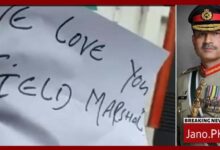 WE LOVE YOU
FIELD MARSHAL
BREAKING NEWS
Jano.PK